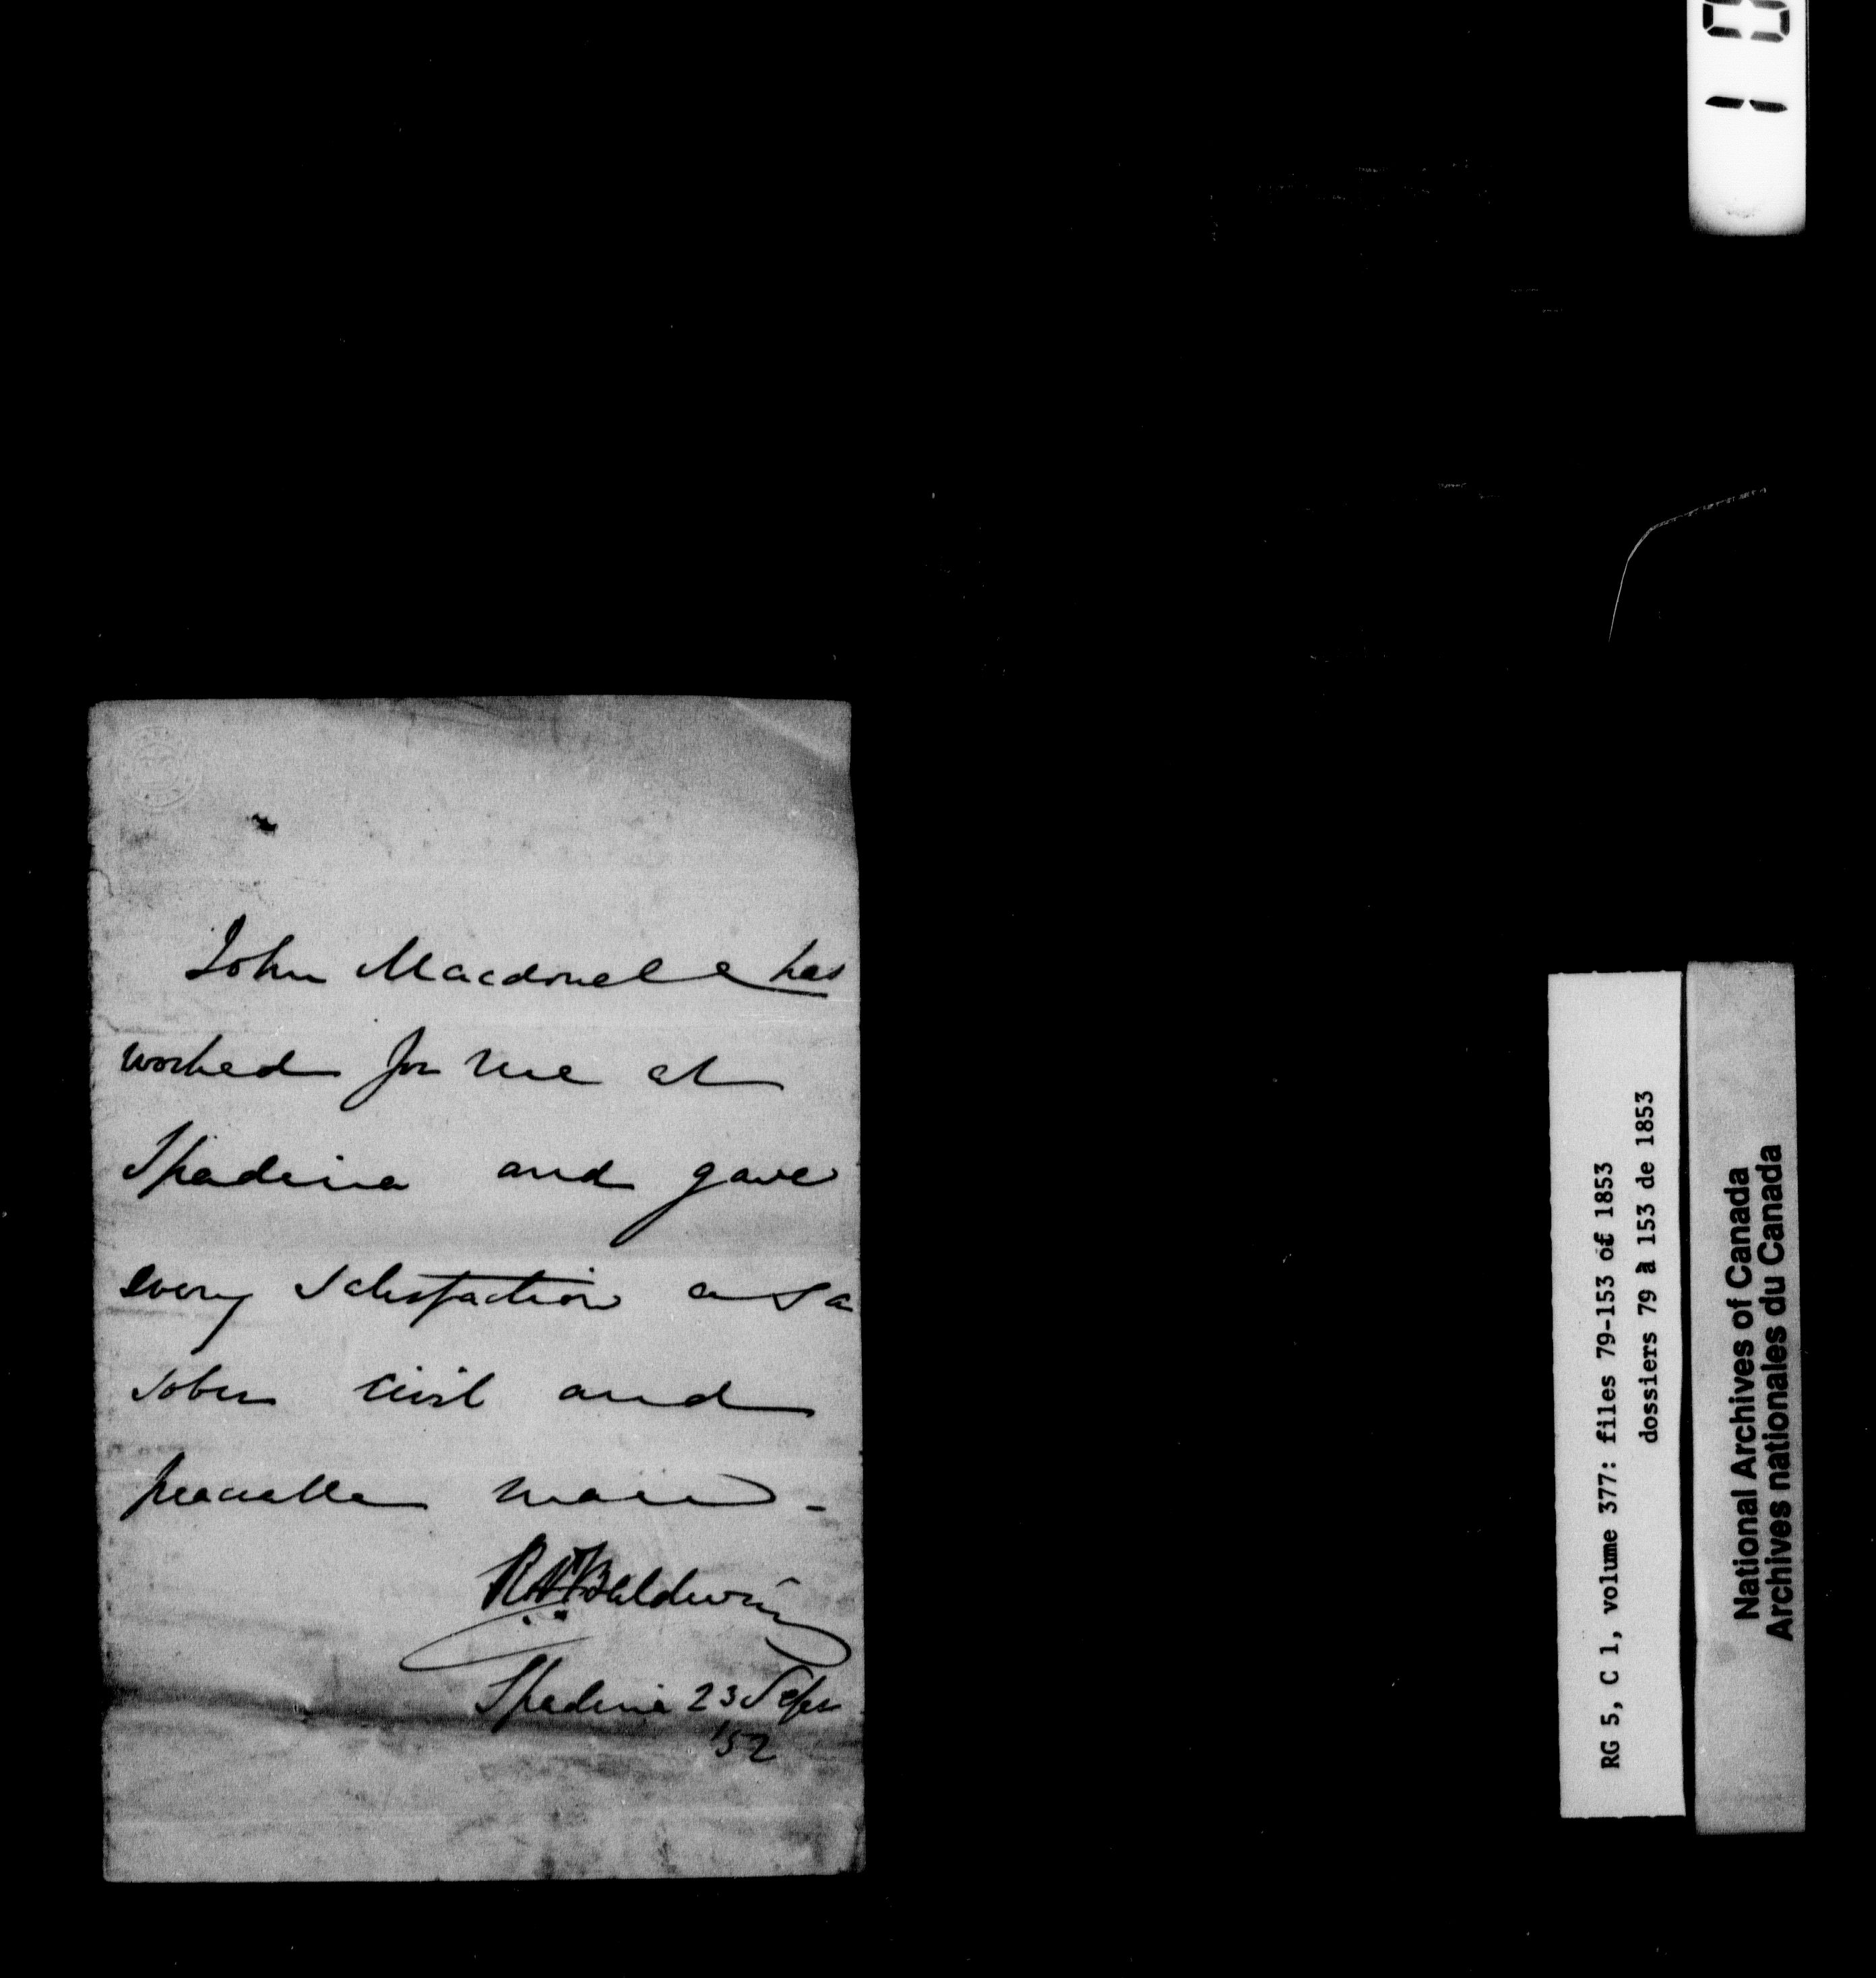 John Macdonell has
worked for me at
Spadina and gave
every satisfaction as a
sober civil and
peaceable man -
Baldwin
Spadina 23 Sepr
'52
RG 5, C 1, volume 377: files 79-153 of 1853
dossiers 79 à 153 de 1853
National Archives of Canada
Archives nationales du Canada